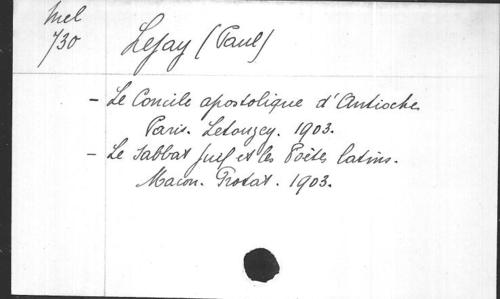 Mel
730
Lejay (Paul)
- Le Concile apostolique d'Antioche
Paris. Letouzey. 1903.
- Le Sabbat juif et les Poètes latins.
Macon. Protat. 1903.